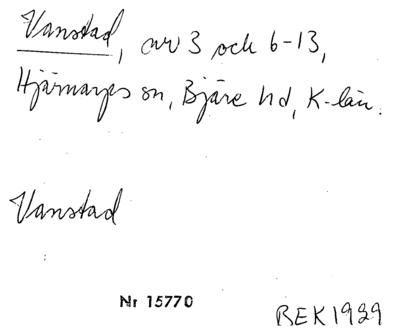 Vanstad, nr 3 och 6-13,
Hjärnarps sn, Bjäre hd, K-län.
Vanstad
Nr 15770
BEK 1929